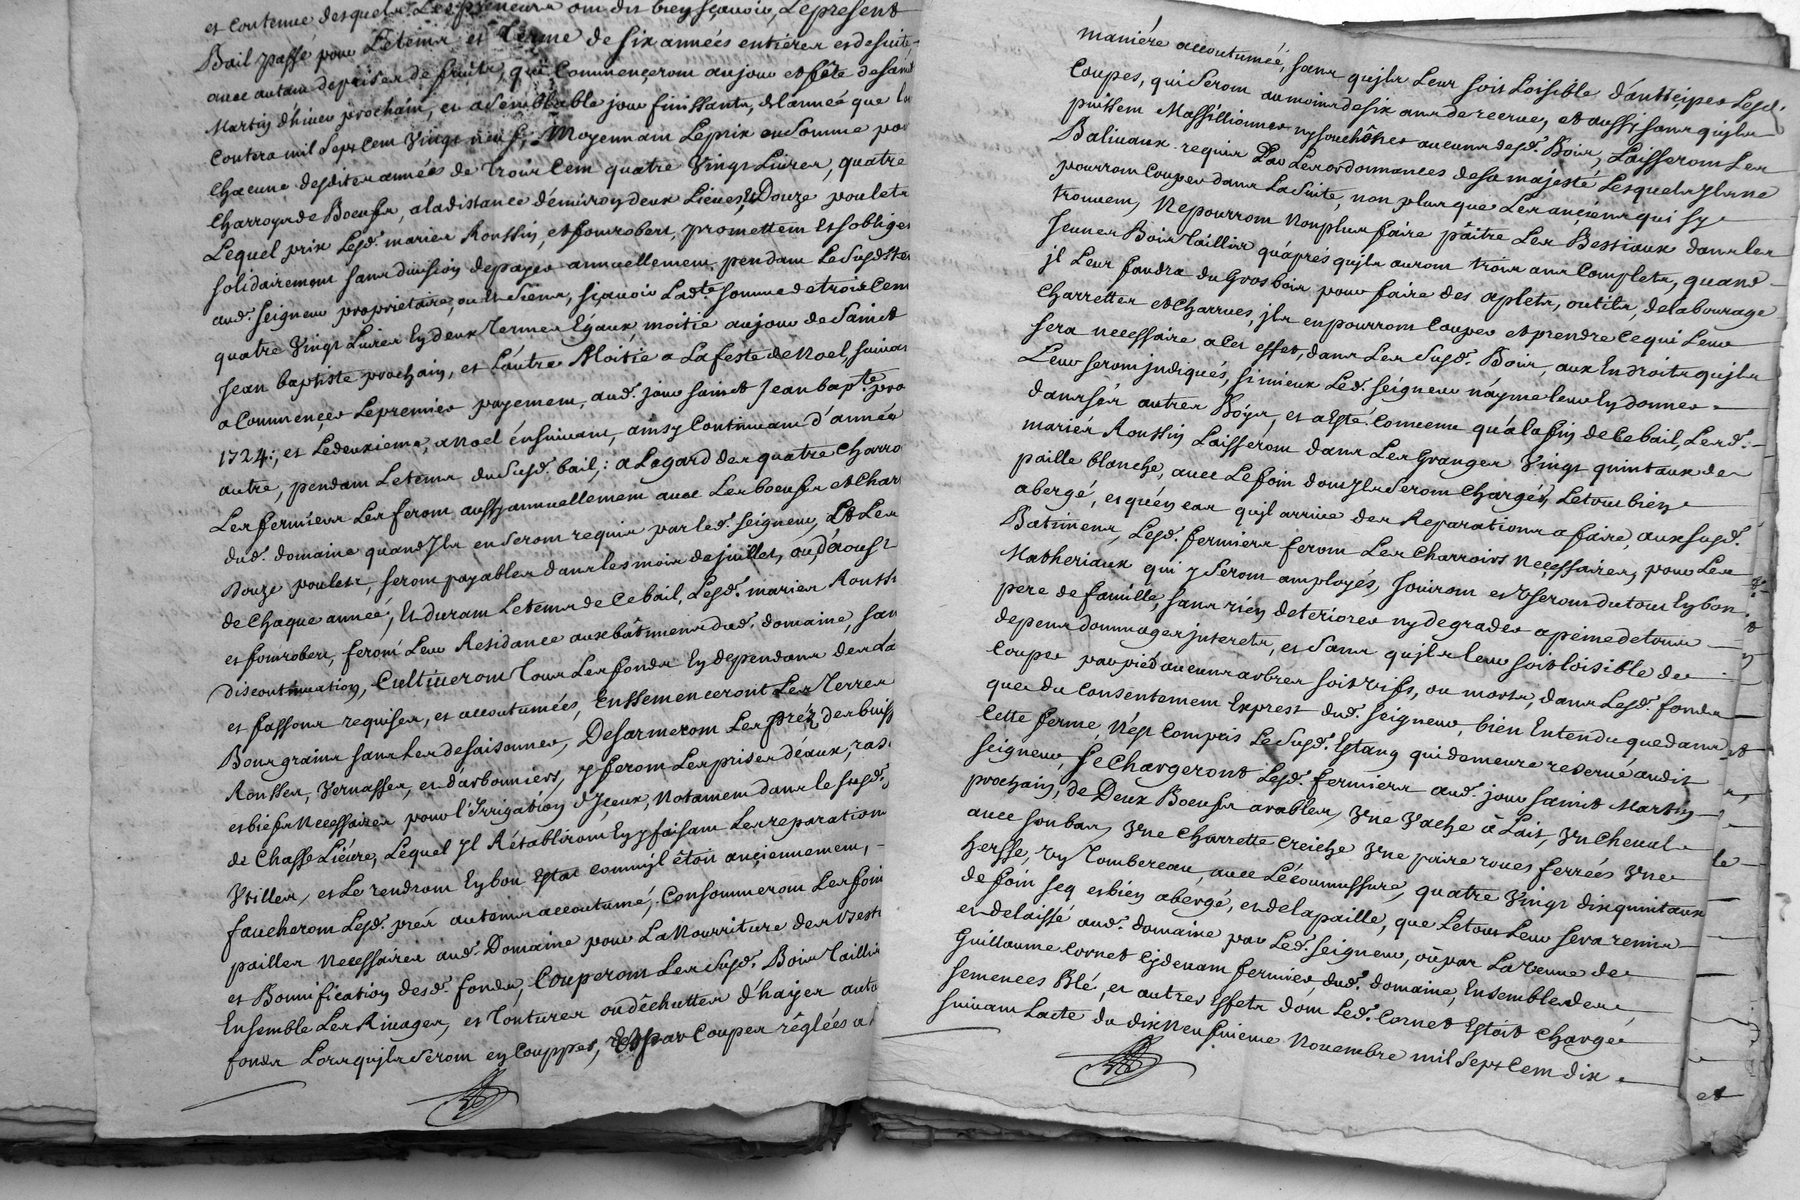 et contenue desquels Les preneurs ont dit bien sçavoir, Le present
Bail passé pour Le tems et Terme de six années entières et de suite
avec autant de prises de fruits, qui Commenceront au jour et fête de saint
Martin d'hiver prochain, et a semblable jour finissants, de l'année que l'on
Contera mil sept Cent Vingt neuf; Moyennant Le prix ou somme pour
Chacune desdites années de Trois Cent quatre Vingt Livres, quatre
Charroys de Boeufs, a la distance d'environ deux Lieues, & Douze poulets
Lequel prix Lesd. mariés Roussin, et fontrobert, promettent et s'obligent
solidairement sans division de payer annuellement, pendant Le susd. tems
aud. seigneur propriétaire, ou és siens, sçavoir Lad.te somme de trois Cent
quatre Vingt Livres en deux Termes Egaux, moitié au jour de Saint
Jean baptiste prochain, et L'autre Moitié a La feste de Noel, suivant
a Commencer Le premier payement, aud. jour saint Jean bap.te pro
1724:, et Le deuxième, a Noel ensuivant, ainsy Continuant d'année
autre, pendant Le tems du susd. bail; a L'egard des quatre Charro
Les fermiers Les feront aussy annuellement avec Les boeufs et Char
dud. domaine quand Ils en seront requis par led. seigneur, Et Les
Douze poulets, seront payables dans les mois de juillet, ou, d'aoust
de Chaque année, Et durant Le tems de Ce bail, Lesd. mariés Roussin
et fontrobert, feront Leur Residance aux bâtimens dud. domaine, san
discontinuation, Cultiveront Tous Les fonds En dependans des La
et fassons requises, et accoutumées, Enssemenceront Les Terres
Bons grains sans Les desaisonner, Desarmeront Les prés, des buiss
Ronsses, Vernasses, et d'arbonniers, y feront Les prises d'eaux, ras
et biefs Necessaires pour l'Irrigation d'Iceux, Notament dans le susd.
de Chasse Liévre, Lequel Il Rétabliront En y faisant Les reparations
Vtilles, et Le rendront En bon Estat comm'jl étoit anciennement,
faucheront Lesd. prés au tems accoutumé, Consommeront Les foin
pailles Necessaires aud. Domaine pour La Nourriture des Besti
et Bonnification desd. fonds, Couperont Les susd. Bois Tailli
Ensemble Les Rivages, et Tontures ou déchuttes d'hayes auto
fonds Lors qu'jls seront en Couppes, Et par Coupes réglées a l
maniére accoutumée, sans qu'jls Leur soit Loisible d'antisciper Lesd.
Coupes, qui seront au moins de six ans de recrue, et aussi sans qu'jls
puissent Massillionner ny souchôtter aucuns desd. Bois, Laisseront Les
Balivaux requis Par Les ordonnances de sa majesté Lesquels Ils ne
pourront Couper dans La suite, non plus que Les anciens qui s'y
trouvent, Ne pourront Non plus faire paître Les Bestiaux dans les
Jeunes Bois Taillis qu'aprés qu'jls auront trois ans Complets, quand
jl Leur faudra du Gros bois pour faire des aplets, outils, de labourage
Charrettes et Charrues, jls en pourront Couper et prendre Ce qui Leur
sera necessaire a Cet effet, dans Les susd. Bois, aux Endroits qu'jls
Leur seront jndiqués, si mieux Led. seigneur n'ayme leur En donner
dans ses autres Boys, et a Esté Convenu qu'a la fin de Ce bail, Lesd.
mariés Roussin Laisseront dans Les Granges Vingt quintaux de
paille blanche, avec Le foin dont Ils seront Chargés, Le tout bien
abergé, et qu'en cas qu'jl arrive des Reparations a faire, aux susd.
Batimens, Lesd. fermiers feront Les Charroirs Necessaires, pour Les
Matheriaux qui y seront employés, Jouiront et Vseront du tout En bon
pere de famille, sans rien deteriorer ny degrader a peine de tous
depens dommages jnterets, et sans qu'jls leur soit loisible de
Couper par pied aucuns arbres soit vifs, ou morts, dans Lesd. fonds
que du Consentement Exprest dud. seigneur, bien Entendu que dans
Cette ferme, N'est Compris Le susd. Estang qui demeure reservé audit
seigneur, Se Chargeront Lesd. fermiers aud. jour saint Martin
prochain, de Deux Boeufs arables, Vne Vache à Lait, Vn Cheval
avec son bas, Vne Charrette Creiche Vne paire roues ferrées Vne
hersse, Vn Tombereau, avec L'écoumussure, quatre Vingt dix quintaux
de foin sec et bien abergé, et de la paille, que Le tout Leur sera remis
et delaissé aud. domaine par Led. seigneur, où par La Venue de
Guillaume Cornet Cy devant fermier dud. domaine, Ensemble des
semences Blé, et autres Effets dont Led. Cornet Estoit Chargé
suivant L'acte du dix Neufviéme Novembre mil sept Cent dix
et